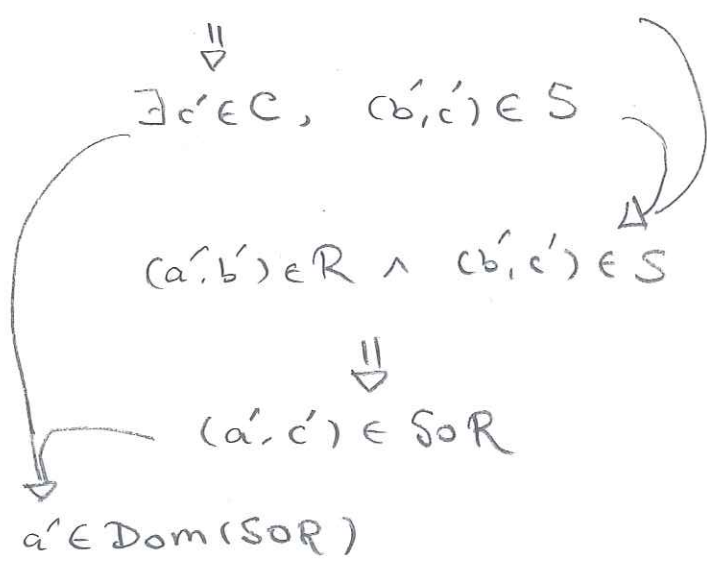 ⇓
∃c′∈C, (b′,c′)∈S
(a′,b′)∈R ∧ (b′,c′)∈S
⇓
(a′,c′)∈SoR
a′∈Dom(SoR)